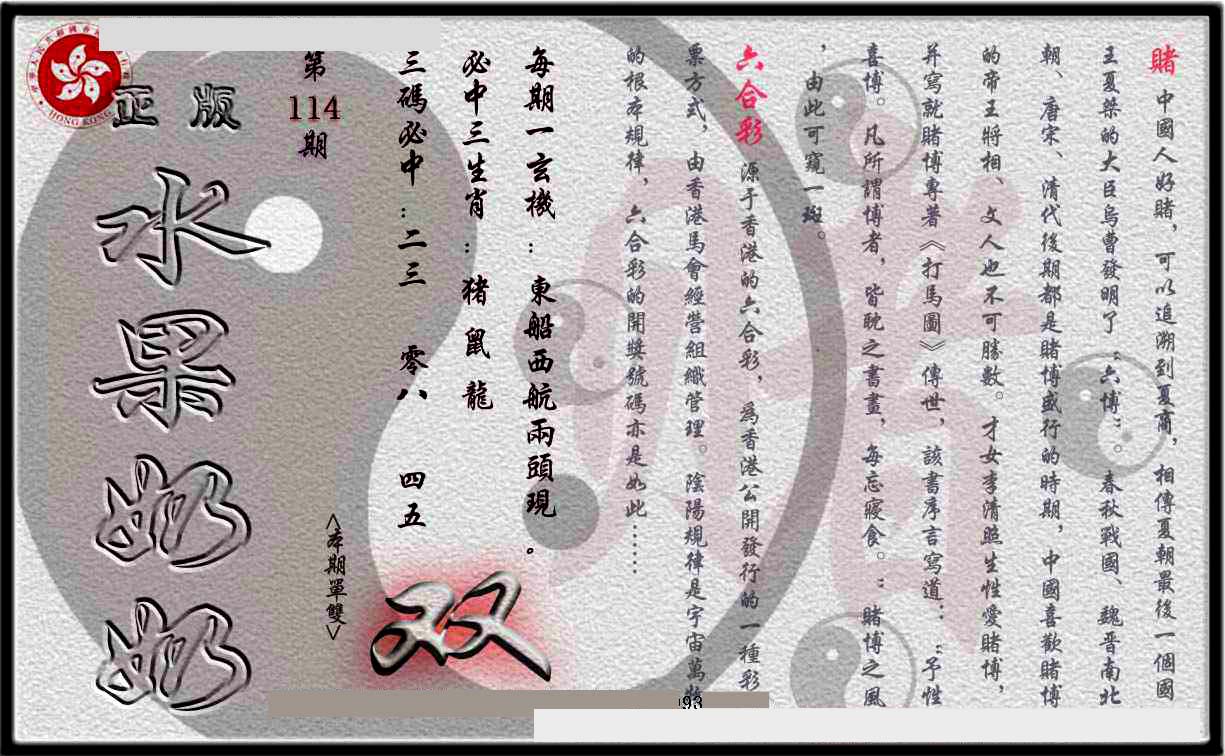 賭 中國人好賭，可以追溯到夏商，相傳夏朝最後一個國
王夏桀的大臣烏曹發明了“六博”。春秋戰國、魏晋南北
朝、唐宋、清代後期都是賭博盛行的時期，中國喜歡賭博
的帝王將相、文人也不可勝數。才女李清照生性愛賭博，
并寫就賭博專著《打馬圖》傳世，該書序言寫道：“予性
喜博。凡所謂博者，皆耽之書畫，每忘寢食。”賭博之風
，由此可窺一斑。
六合彩 源于香港的六合彩，爲香港公開發行的一種彩
票方式，由香港馬會經營組織管理。陰陽規律是宇宙萬物
的根本規律，六合彩的開獎號碼亦是如此……
每期一玄機：東船西航兩頭現。
必中三生肖：猪 鼠 龍
三碼必中：二三 零八 四五
<本期單雙>
双
第
114
期
正版
水果奶奶
HONG KONG
93